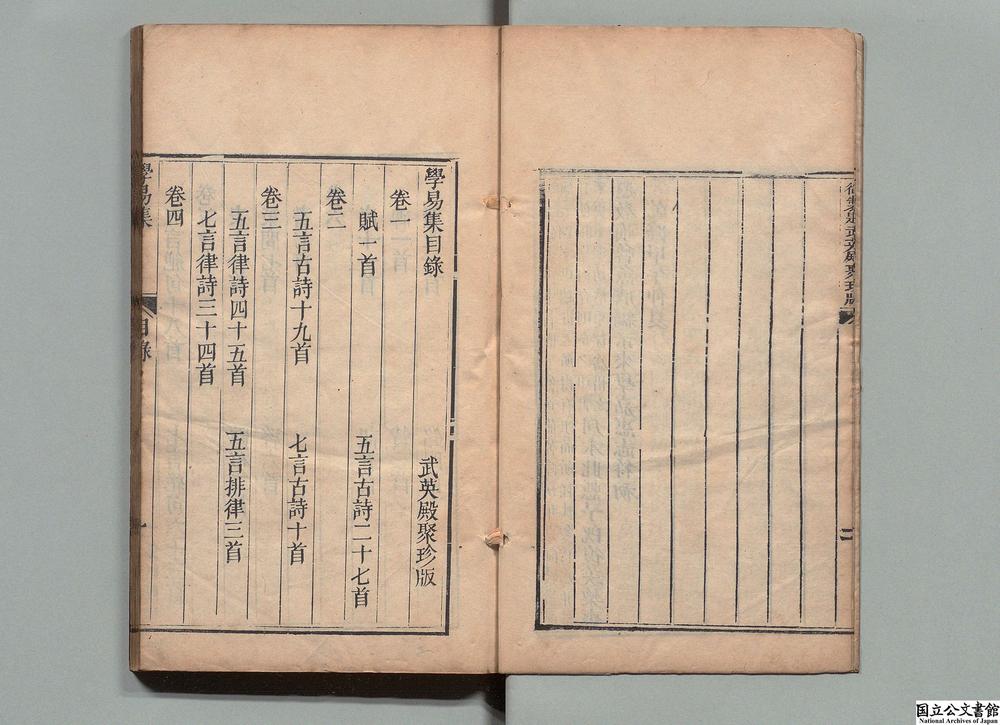 武英殿聚珍版
二
學易集目錄
武英殿聚珍版
卷一
賦一首　五言古詩二十七首
卷二
五言古詩十九首　七言古詩十首
卷三
五言律詩四十五首　五言排律三首
七言律詩三十四首
卷四
學易集　目錄　一
国立公文書館
National Archives of Japan